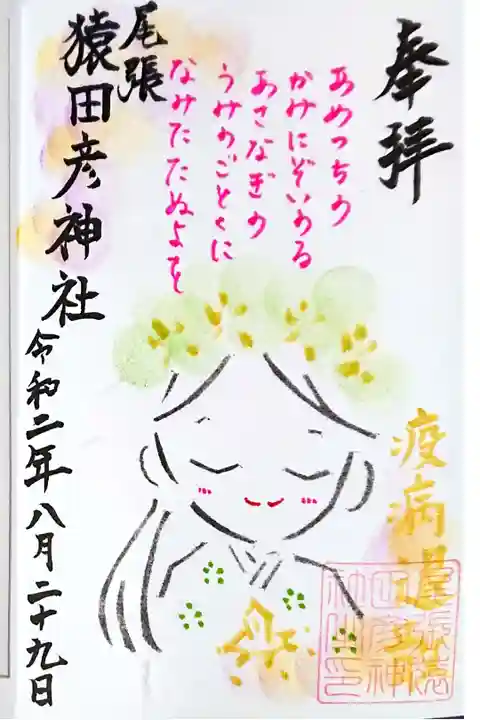 奉拝
あめつちの
かみにぞいのる
あさなぎの
うみのごとくに
なみたたぬよを
尾張
猿田彦神社
令和二年八月二十九日
疫病退